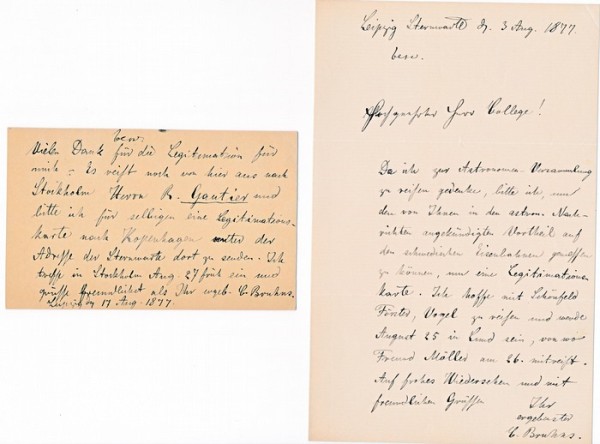 besv.
Vielen Dank für die Legitimation für
mich – Es reist noch von hier aus nach
Stockholm Herrn R. Gautier und
bitte ich für selbigen eine Legitimations-
karte nach Kopenhagen unter der
Adresse der Sternwarte dort zu senden. Ich
treffe in Stockholm Aug. 27 früh ein und
grüsse freundlichst als Ihr ergeb. C. Bruhns.
Leipzig 17 Aug. 1877.
Leipzig Sternwarte d. 3 Aug. 1877.
besv.
Hochgeehrter Herr College!
Da ich zur Astronomen-Versammlung
zu reisen gedenke, bitte ich, um
den von Ihnen in den astron. Nach-
richten angekündigten Vortheil auf
den schwedischen Eisenbahnen geniessen
zu können, um eine Legitimations
karte. Ich hoffe mit Schönfeld
Förster, Vogel zu reisen und werde
August 25 in Lund sein, von wo
Freund Möller am 26. mitreist.
Auf frohes Wiedersehen und mit
freundlichen Grüssen
Ihr
ergebenster
C. Bruhns.